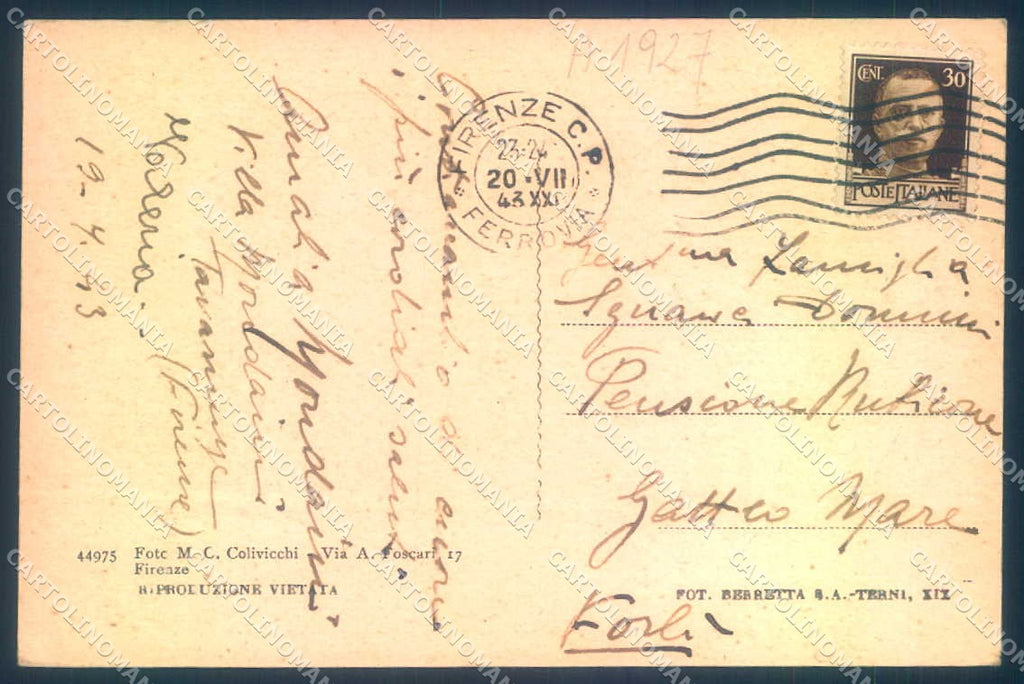 A 1927
CENT. 30
POSTE ITALIANE
FIRENZE C.P.
23-24
20·VII
43 XXI
* FERROVIA *
Famiglia
Pensione Rubicone
Gatteo Mare
Forlì
di cuore
i più cordiali saluti
Amalia Mondaini
Villa Mondaini
Tavarnuzze
(Firenze)
19-7-43
44975 Foto M. C. Colivicchi - Via A. Foscari, 17
Firenze
RIPRODUZIONE VIETATA
FOT. BERRETTA S.A.-TERNI, XIX
CARTOLINOMANIA